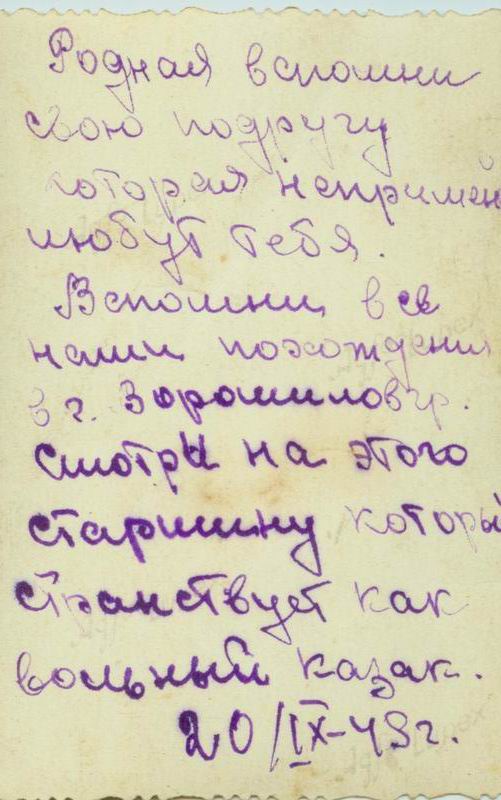 Родная вспомни
свою подругу
которая напримен
любут тебя.
Вспомни, все
наши похождения
в г. Ворошиловгр.
Смотри на этого
старшину который
странствует как
вольный казак.
20/IX-49г.